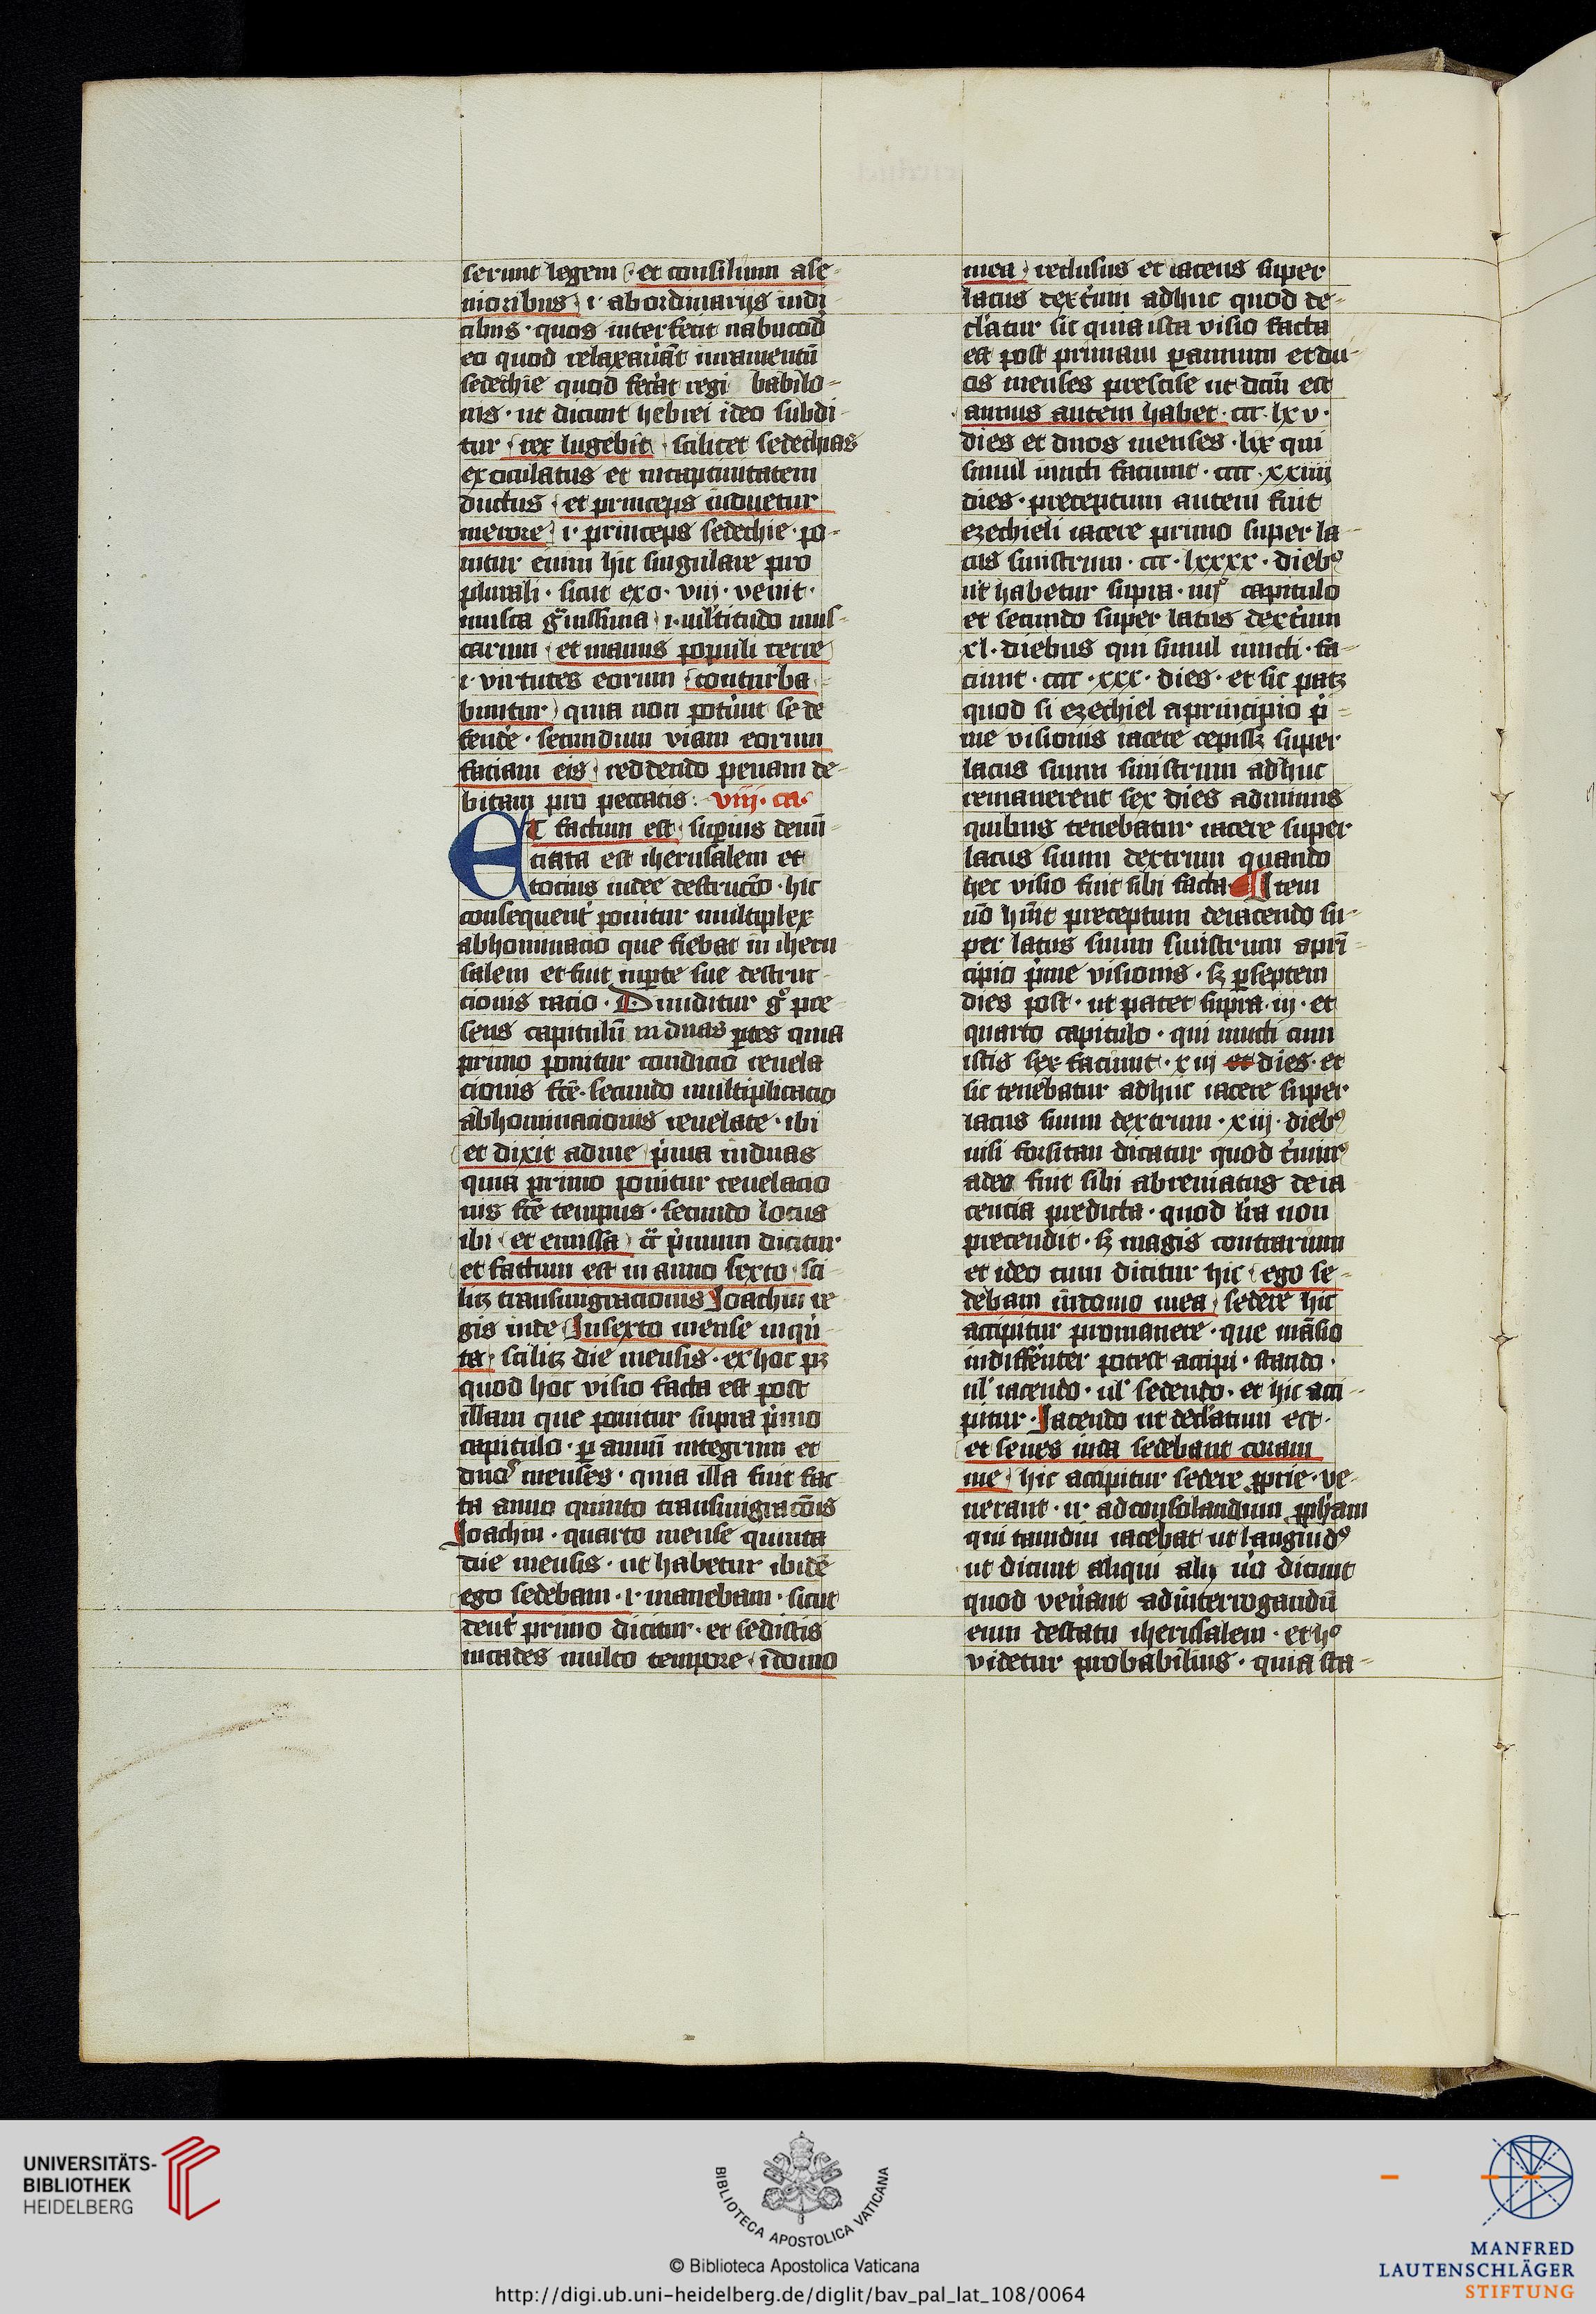 serunt legem et consilium a se-
nioribus i· ab ordinarijs iudi
cibus · quos interfecit nabucod̕
eo quod relaxauāt iuramentū
sedechie quod fec̕at regi babilo-
nis · ut dicunt hebrei ideo subdi-
tur rex lugebit scilicet sedechias
exoculatus et in captiuitatem
ductus et princeps induetur
merore i· princeps sedechie · po-
nitur enim hic singulare pro
plurali · sicut exo · viij · venit ·
musca g̃uissima i· multitudo mus-
carum et manus populi terre
i· virtutes eorum conturba-
buntur quia non pot̕unt se de
fend̕e · secundum viam eorum
faciam eis reddendo penam de-
bitam pro peccatis : viij · ca·
ET factum est sup̕ius denū-
ciata est iherusalem et
tocius iudee destructō · hic
consequent̕ ponitur multiplex
abhominacio que fiebat in iheru-
salem et fuit in p̱te sue destruc-
cionis racio · Diuiditur g̊ pre-
sens capitulū in duas p̱tes quia
primo ponitur condicio reuela
cionis fcē · secundo multiplicacio
abhominacionis reuelate · ibi
et dixit ad me p̕ma in duas
quia primo ponitur reuelacio
nis fcē tempus · secundo locus
ibi et emissa c̄c̄ p̕mum dicitur
et factum est in anno sexto sci
licꝫ transmigracionis Joachin re
gis iude In sexto mense in qu̕n
ta scilicꝫ die mensis · ex hoc pꝫ
quod hoc visio facta est post
illam que ponitur supra p̕mo
capitulo · ꝑ annū integrum et
duos menses · quia illa fuit fac
ta anno quinto transmigracōis
Joachin · quarto mense quinta
die mensis · ut habetur ibidē
ego sedebam · i· manebam · sicut
deut̕ primo dicitur · et sedistis
in cades multo tempore ī domo
mea reclusus et iacens super
latus dext̕um adhuc quod de-
cl̕atur sic quia ista visio facta
est post primam ꝑ annum et du-
os menses prescise ut dictū est
annus autem habet · ccc · lxv ·
dies et duos menses · lix qui
simul iuncti faciunt · cccc · xxiiij
dies · preceptum autem fuit
ezechieli iacere primo super la-
tus sinistrum · ccc · lxxxx · diebꝰ
ut habetur supra · iiijº capitulo
et secundo super latus dext̕um
xl · diebus qui simul iuncti · fa-
ciunt · cccc · xxx · dies · et sic patꝫ
quod si ezechiel a principio p̕-
me visionis iacere cepissꝫ super
latus suum sinistrum adhuc
remanerent sex dies ad minus
quibus tenebatur iacere super
latus suum dextrum quando
hec visio fuit sibi facta ¶ Item
nō h̕uit preceptum de iacendo su-
per latus suum sinistrum a pri̅-
cipio p̕me visionis · sꝫ ꝑ septem
dies post · ut patet supra · iij · et
quarto capitulo · qui iuncti cum
istis sex faciunt · xiij et dies · et
sic tenebatur adhuc iacere super
latus suum dextrum · xiij · diebꝰ
nisi forsitan dicatur quod t̕minꝰ
a deo fuit sibi abreuiatus de ia
cencia predicta · quod lr̄a non
pretendit · sꝫ magis contrarium
et ideo cum dicitur hic ego se-
debam in domo mea sedere hic
accipitur pro manere · que māsio
indiffēnter potest accipi · stando ·
ul̕ iacendo · ul̕ sedendo · et hic acci-
pitur · Jacendo ut decl̕atum est ·
et senes iuda sedebant coram
me hic accipitur sedere ꝓprie · ve-
nerant · n̄· ad consolandum ꝓph̕am
qui tamdiu iacebat ut languidꝰ
ut dicunt aliqui alij u̕o dicunt
quod ven̕ant ad interrogandū
eum de statu iherusalem · et hº
videtur probabilius · quia sta-
UNIVERSITÄTS-
BIBLIOTHEK
HEIDELBERG
BIBLIOTECA APOSTOLICA VATICANA
© Biblioteca Apostolica Vaticana
http://digi.ub.uni-heidelberg.de/diglit/bav_pal_lat_108/0064
MANFRED
LAUTENSCHLÄGER
STIFTUNG